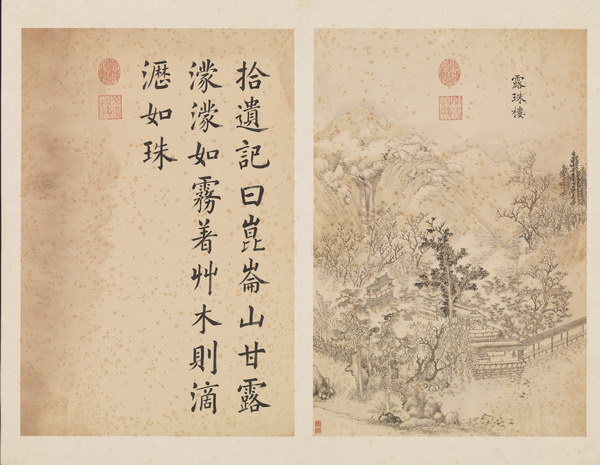 露珠樓
拾遺記曰崑崙山甘露
濛濛如霧著艸木則滴
瀝如珠